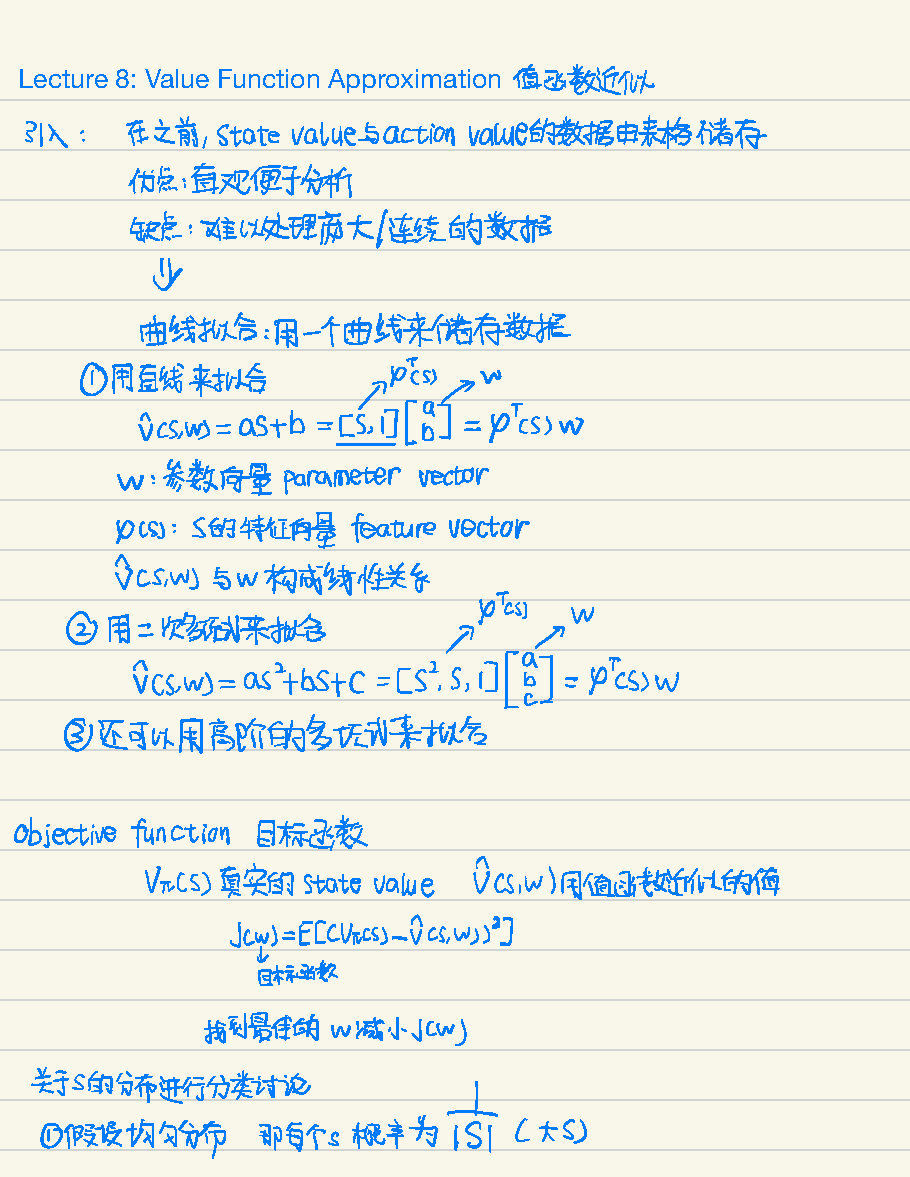 Lecture 8: Value Function Approximation 值函数近似
引入: 在之前, state value与action value的数据由表格储存
优点:直观便于分析
缺点:难以处理庞大/连续的数据
⇓
曲线拟合:用一个曲线来储存数据
①用直线来拟合 φᵀ(s) w
v̂(s,w) = as+b = [s,1][a b] = φᵀ(s)w
w:参数向量 parameter vector
φ(s): s的特征向量 feature vector
v̂(s,w) 与w 构成线性关系
②用二次多项式来拟合 φᵀ(s) w
v̂(s,w) = as²+bs+c = [s²,s,1][a b c] = φᵀ(s)w
③还可以用高阶的多项式来拟合
objective function 目标函数
Vπ(s)真实的 state value v̂(s,w)用值函数近似的值
J(w)=E[(Vπ(s)-v̂(s,w))²]
目标函数
找到最佳的 w 减小J(w)
关于s的分布进行分类讨论
①假设均匀分布 那每个s 概率为 1/|S| (大S)